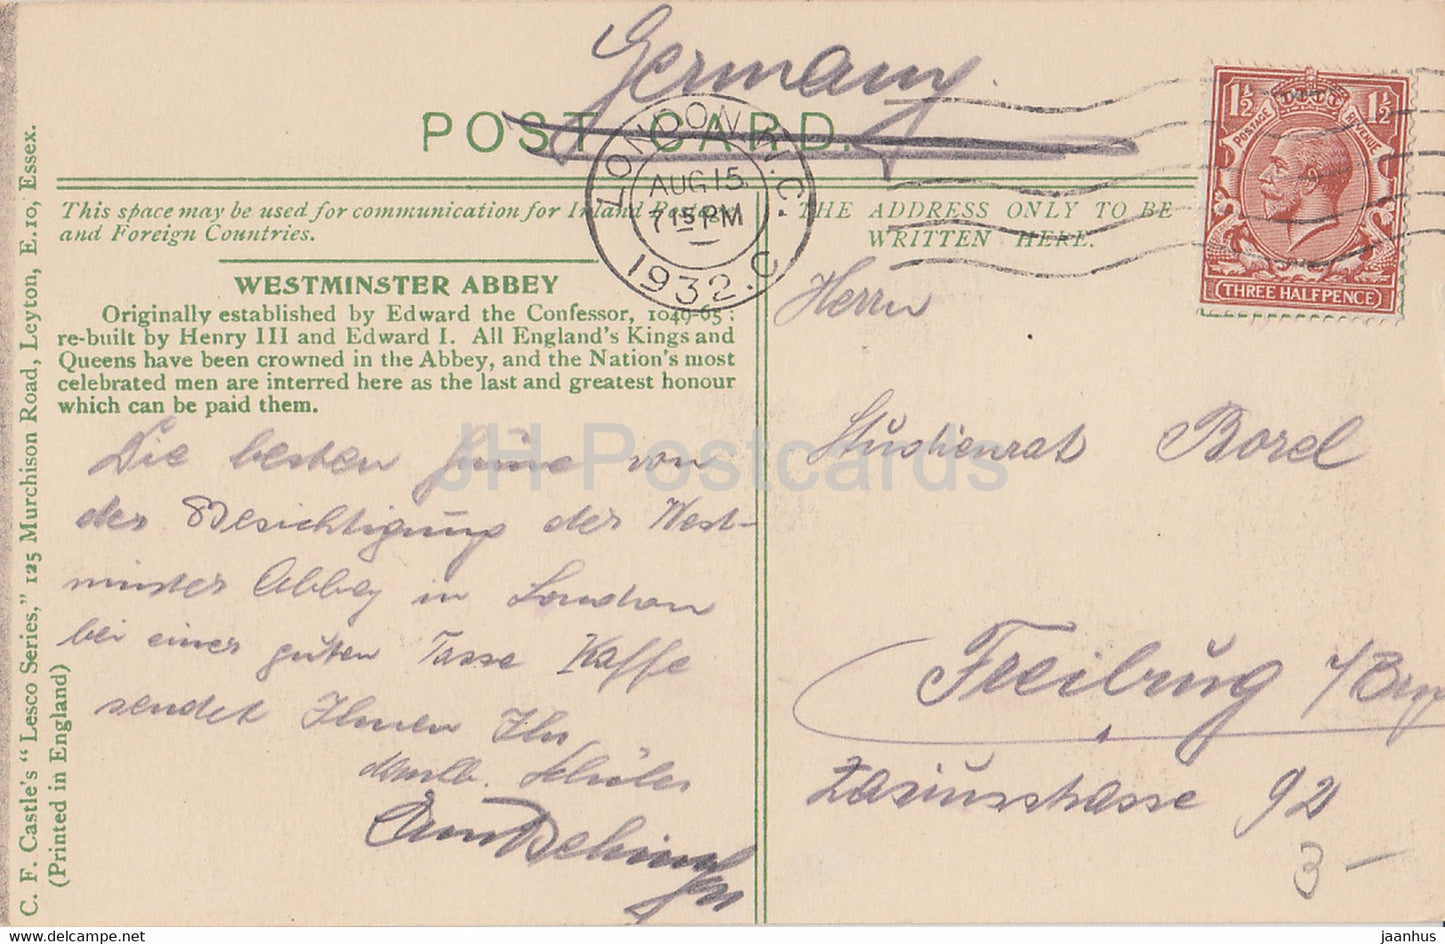 Germany.
POST CARD.
LONDON. W.C.
AUG 15
7 15 PM
1932. C
1½ 1½
POSTAGE REVENUE
THREE HALFPENCE
This space may be used for communication for Inland
and Foreign Countries.
THE ADDRESS ONLY TO BE
WRITTEN HERE.
WESTMINSTER ABBEY
Originally established by Edward the Confessor, 1049-65;
re-built by Henry III and Edward I. All England's Kings and
Queens have been crowned in the Abbey, and the Nation's most
celebrated men are interred here as the last and greatest honour
which can be paid them.
Die besten Grüsse von
der Besichtigung der West-
minster Abbey in London
bei einer guten Tasse Kaffe
sendet Ihnen Ihr
dankb. Schüler
Herrn
Studienrat Borel
Freiburg
Zasiusstrasse 92
3 -
C. F. Castle's "Lesco Series," 125 Murchison Road, Leyton, E.10, Essex.
(Printed in England)
JH Postcards
delcampe.net
jaanhus